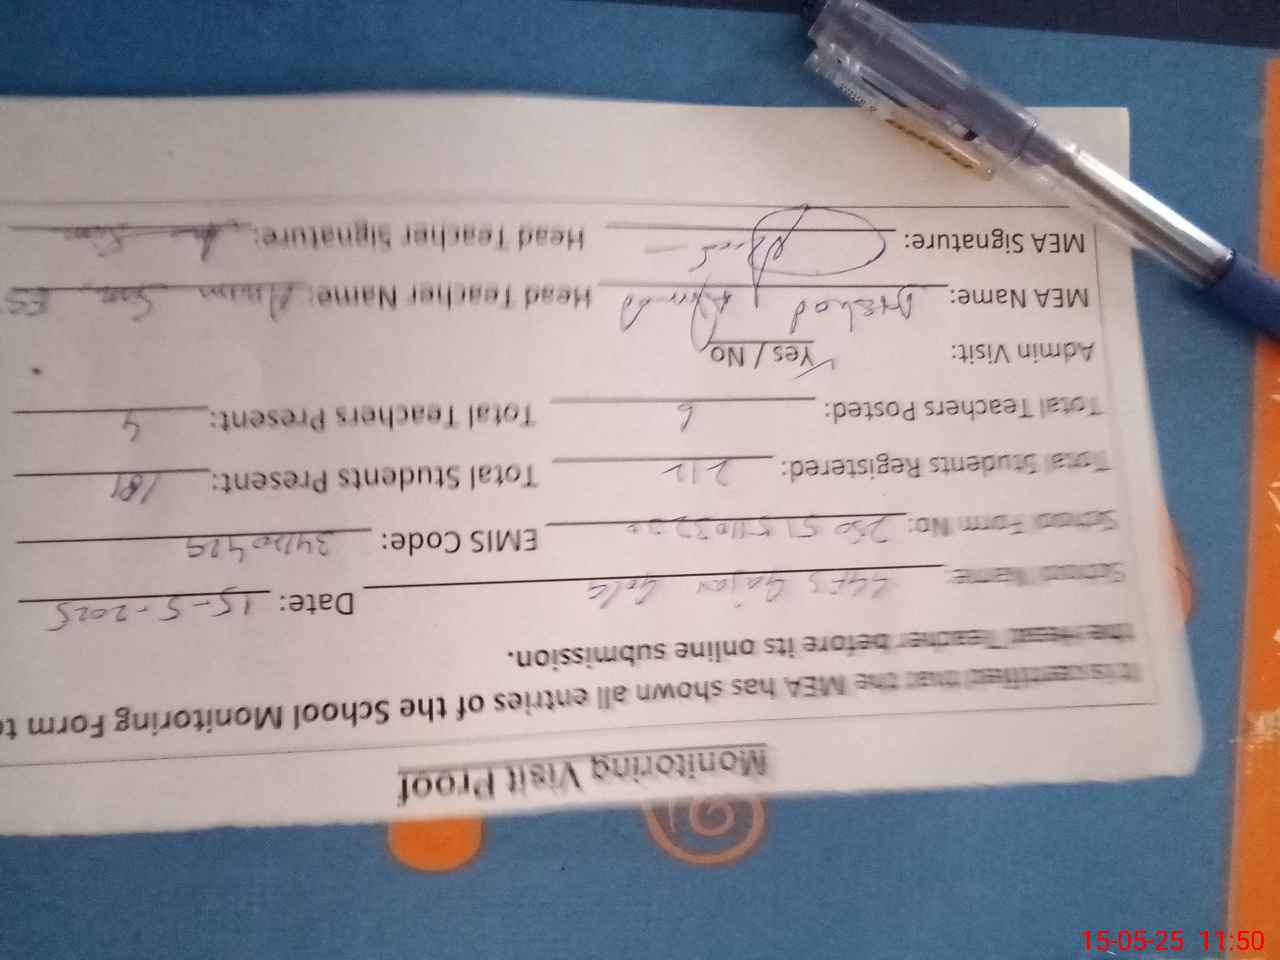 Monitoring Visit Proof
It is certified that the MEA has shown all entries of the School Monitoring Form to
the Head Teacher before its online submission.
School Name: GGES Gajar Gola Date: 15-5-2025
School Form No: EMIS Code:
Total Students Registered: 212 Total Students Present: 181
Total Teachers Posted: 6 Total Teachers Present: 4
Admin Visit: Yes / No
MEA Name: Arshad Ahmad Head Teacher Name:
MEA Signature: Head Teacher Signature:
15-05-25 11:50